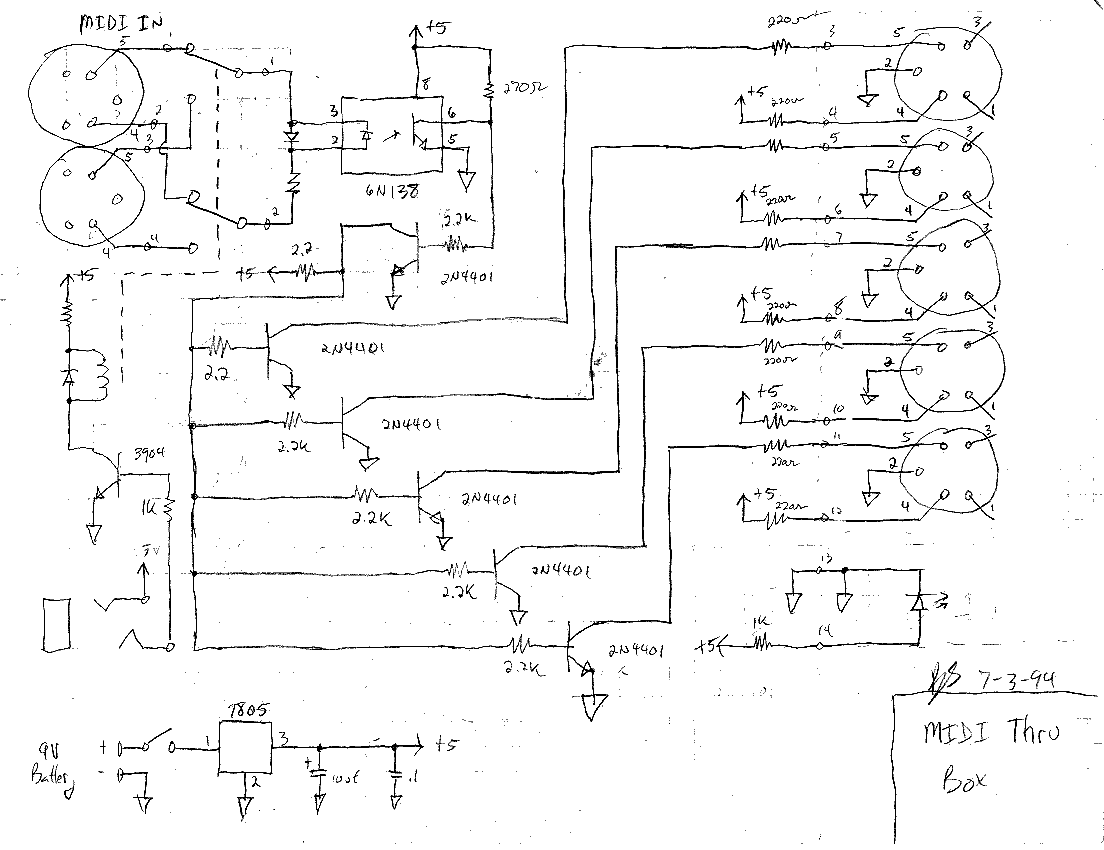 MIDI IN
5
1
1
4
2
3
5
4
4
2
+5
8
270Ω
3
2
6
5
6N138
2.2K
2N4401
2.2
+5
+5
2.2
2N4401
2.2K
2N4401
3904
1K
2.2K
2N4401
5V
2.2K
2N4401
2.2K
2N4401
220Ω
3
5
3
2
+5
220Ω
4
4
1
5
5
3
2
+5
220Ω
6
4
1
7
5
3
2
+5
220Ω
8
4
1
9
220Ω
5
3
2
+5
220Ω
10
4
1
11
220Ω
5
3
2
+5
220Ω
12
4
1
13
1K
14
+5
9V
Battery
+
-
1
7805
3
2
+
10uf
.1
+5
7-3-94
MIDI Thru
Box